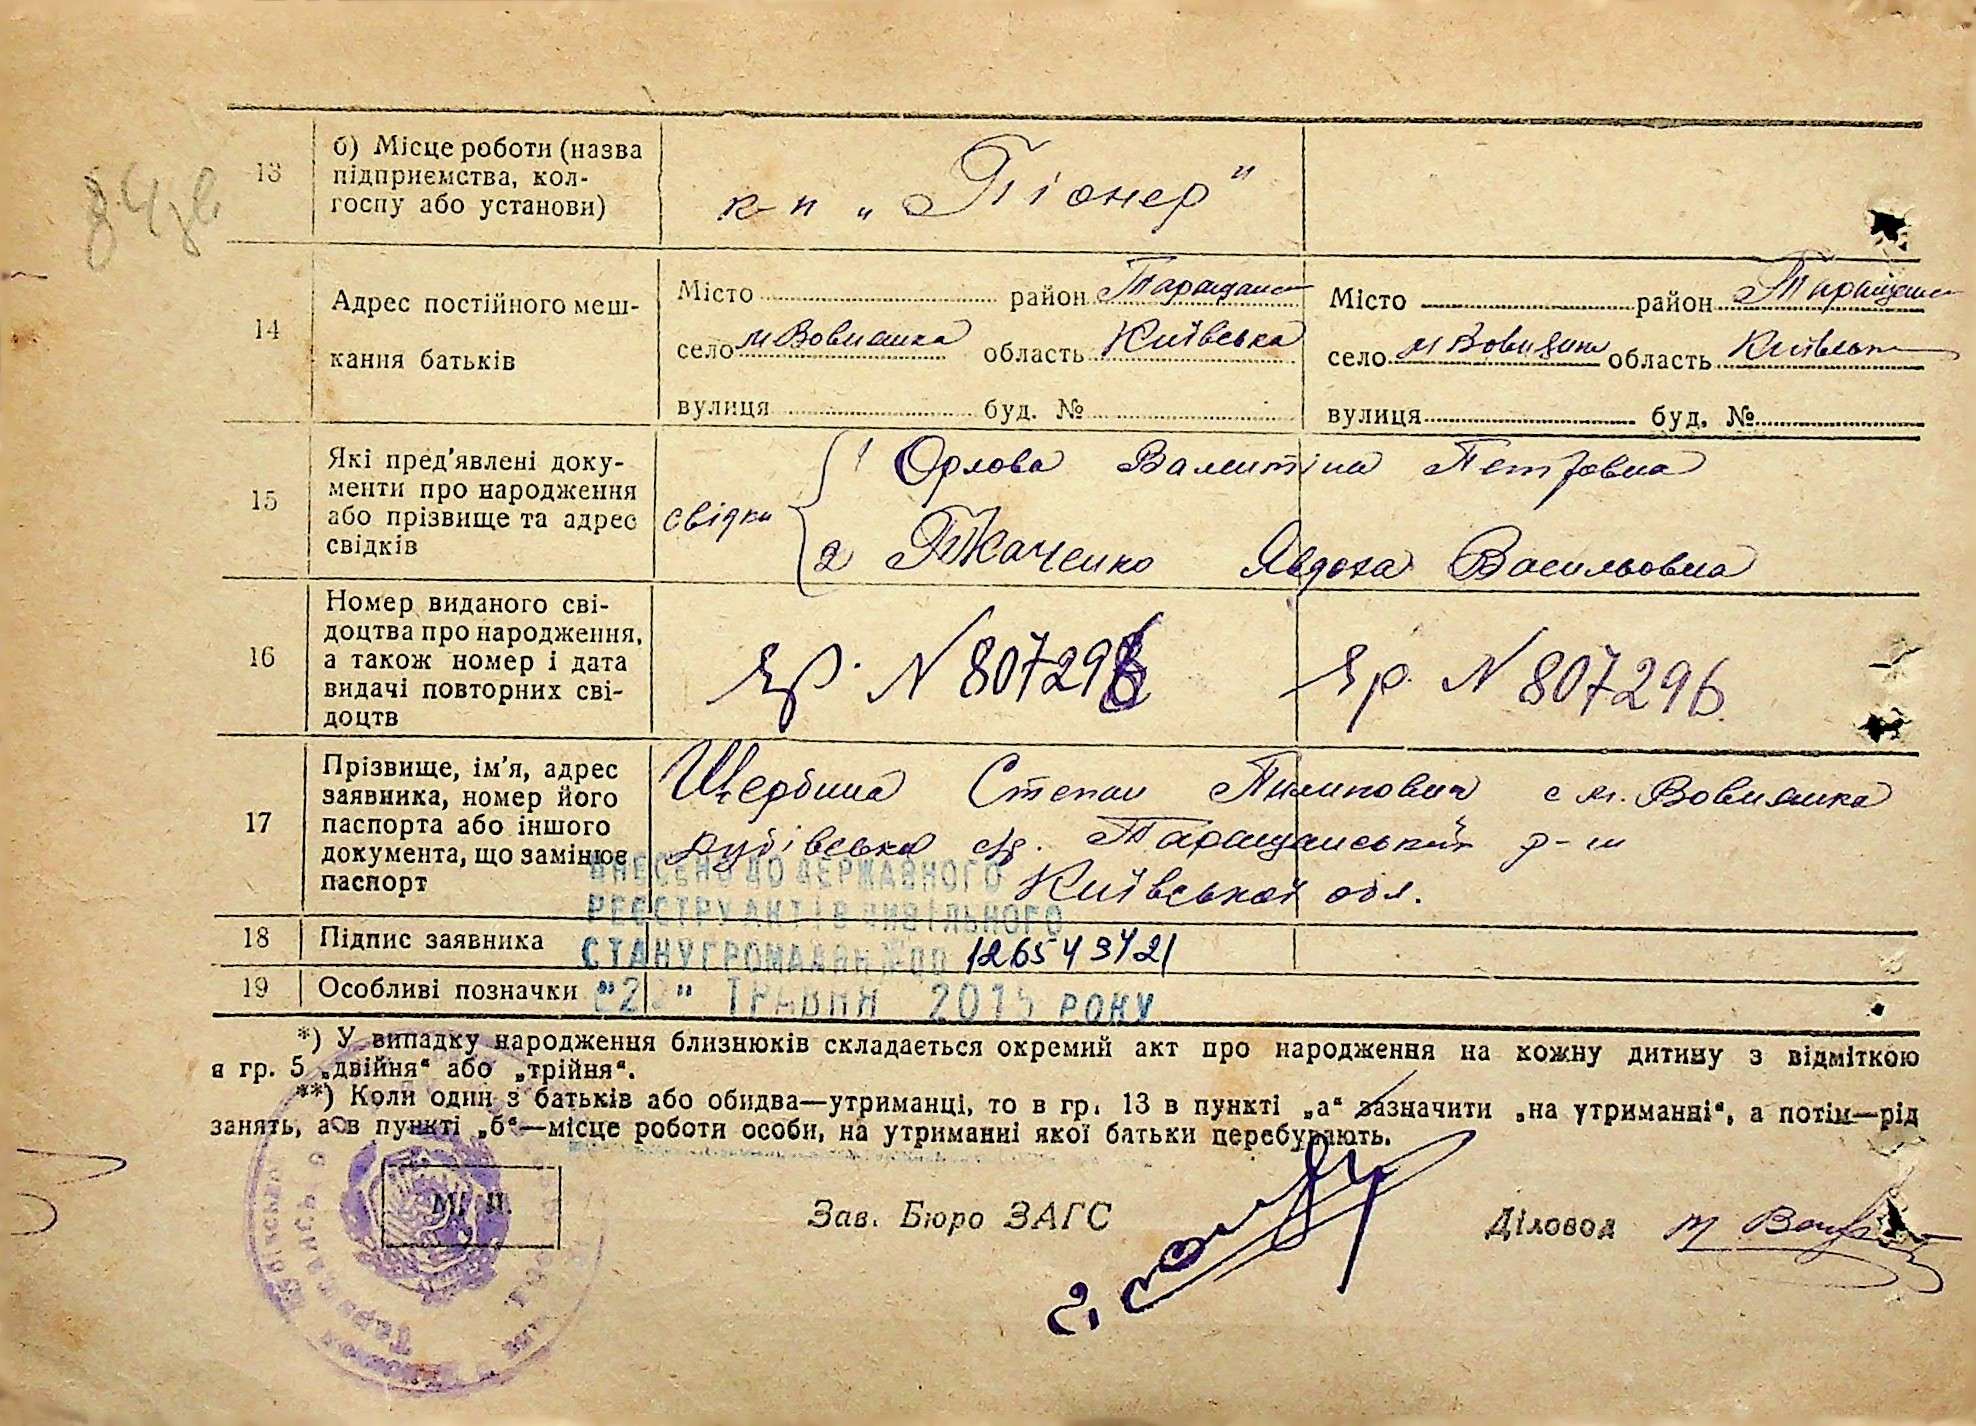 13
б) Місце роботи (назва
підприємства, кол-
госпу або установи)
к-п „Піонер"
14
Адрес постійного меш-
кання батьків
Місто район Таращанс
село м Вовнянка область Київська
вулиця буд. №
Місто район Таращанс
село м Вовнянка область Київська
вулиця буд. №
15
Які пред'явлені доку-
менти про народження
або прізвище та адрес
свідків
свідки
1 Орлова Валентіна Петровна
2 Ткаченко Явдоха Васильовна
16
Номер виданого сві-
доцтва про народження,
а також номер і дата
видачі повторних сві-
доцтв
ЯР. N 807296
Яр. N 807296.
17
Прізвище, ім'я, адрес
заявника, номер його
паспорта або іншого
документа, що замінює
паспорт
Щербина Степан Пилипович с м. Вовнянка
Таращанський р-н
Київської обл.
ВНЕСЕНО ДО ДЕРЖАВНОГО
РЕЄСТРУ АКТІВ ЦИВІЛЬНОГО
СТАНУ ГРОМАДЯН №00 126543421
"22" ТРАВНЯ 2015 РОКУ
18
Підпис заявника
19
Особливі позначки
*) У випадку народження близнюків складається окремий акт про народження на кожну дитину з відміткою
в гр. 5 „двійня“ або „трійня“.
**) Коли один з батьків або обидва—утриманці, то в гр. 13 в пункті „а“ зазначити „на утриманні“, а потім—рід
занять, а в пункті „б“—місце роботи особи, на утриманні якої батьки перебувають.
М. П.
Зав. Бюро ЗАГС
Діловод